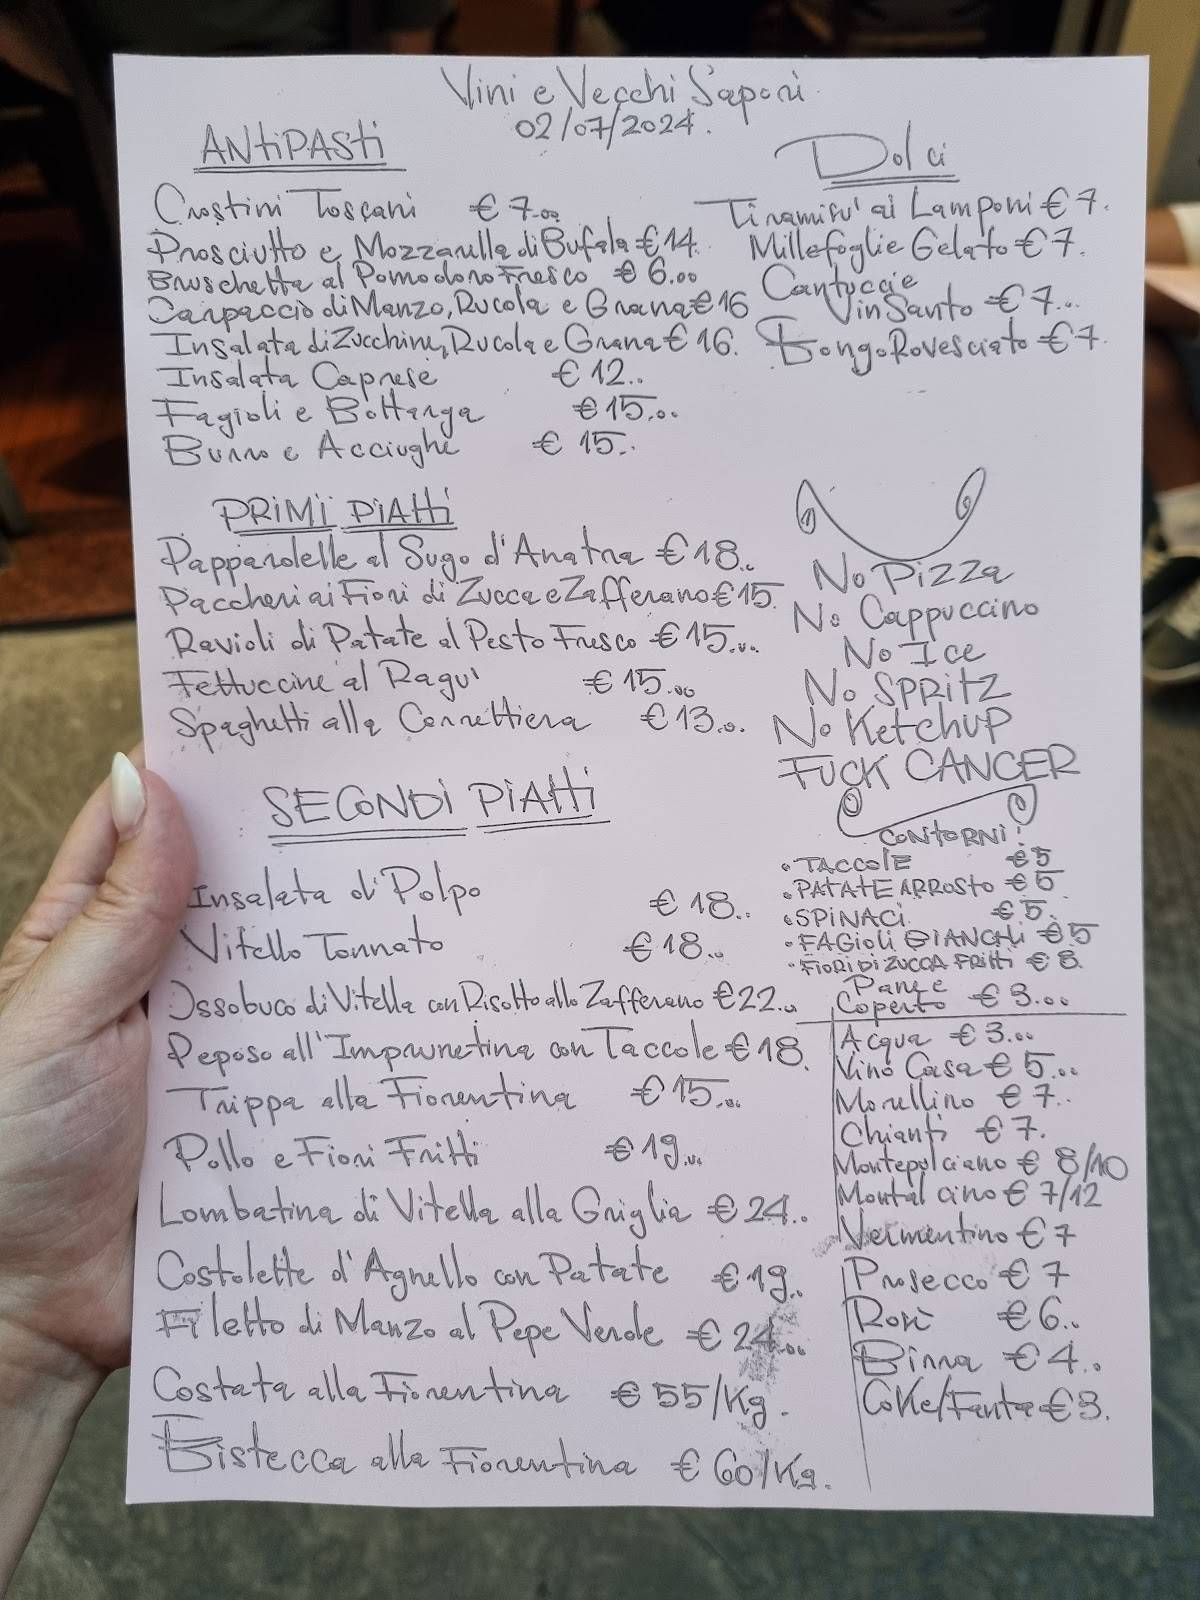 Vini e Vecchi Sapori
02/07/2024.
ANTIPASTI
Crostini Toscani € 7.00
Prosciutto e Mozzarella di Bufala € 14.
Bruschetta al Pomodoro Fresco € 6.00
Carpaccio di Manzo, Rucola e Grana € 16
Insalata di Zucchine, Rucola e Grana € 16.
Insalata Caprese € 12..
Fagioli e Bottarga € 15.00
Burro e Acciughe € 15..
Dolci
Tiramisu' ai Lamponi € 7.
Millefoglie Gelato € 7.
Cantucci e
Vin Santo € 7...
Bongo Rovesciato € 7.
PRIMI PIATTI
Pappardelle al Sugo d'Anatra € 18..
Paccheri ai Fiori di Zucca e Zafferano € 15.
Ravioli di Patate al Pesto Fresco € 15...
Fettuccine al Ragu' € 15.00
Spaghetti alla Carrettiera € 13.0.
No Pizza
No Cappuccino
No Ice
No SPRITZ
No KetchUP
FUCK CANCER
SECONDI PIATTI
Insalata di Polpo € 18..
Vitello Tonnato € 18...
Ossobuco di Vitella con Risotto allo Zafferano € 22..
Peposo all'Imprunetina con Taccole € 18.
Trippa alla Fiorentina € 15.00
Pollo e Fiori Fritti € 19...
Lombatina di Vitella alla Griglia € 24..
Costolette d'Agnello con Patate € 19..
Filetto di Manzo al Pepe Verde € 24.00
Costata alla Fiorentina € 55/Kg.
Bistecca alla Fiorentina € 60/Kg.
CONTORNI!
• TACCOLE € 5
• PATATE ARROSTO € 5
• SPINACI € 5.
• FAGIOLI BIANCHI € 5
• FIORI DI ZUCCA FRITTI € 8
Pane e
Coperto € 3.00
Acqua € 3.00
Vino Casa € 5...
Morellino € 7..
Chianti € 7.
Montepulciano € 8/10
Montalcino € 7/12
Vermentino € 7
Prosecco € 7
Rosè € 6..
Birra € 4..
Coke/Fanta € 3.